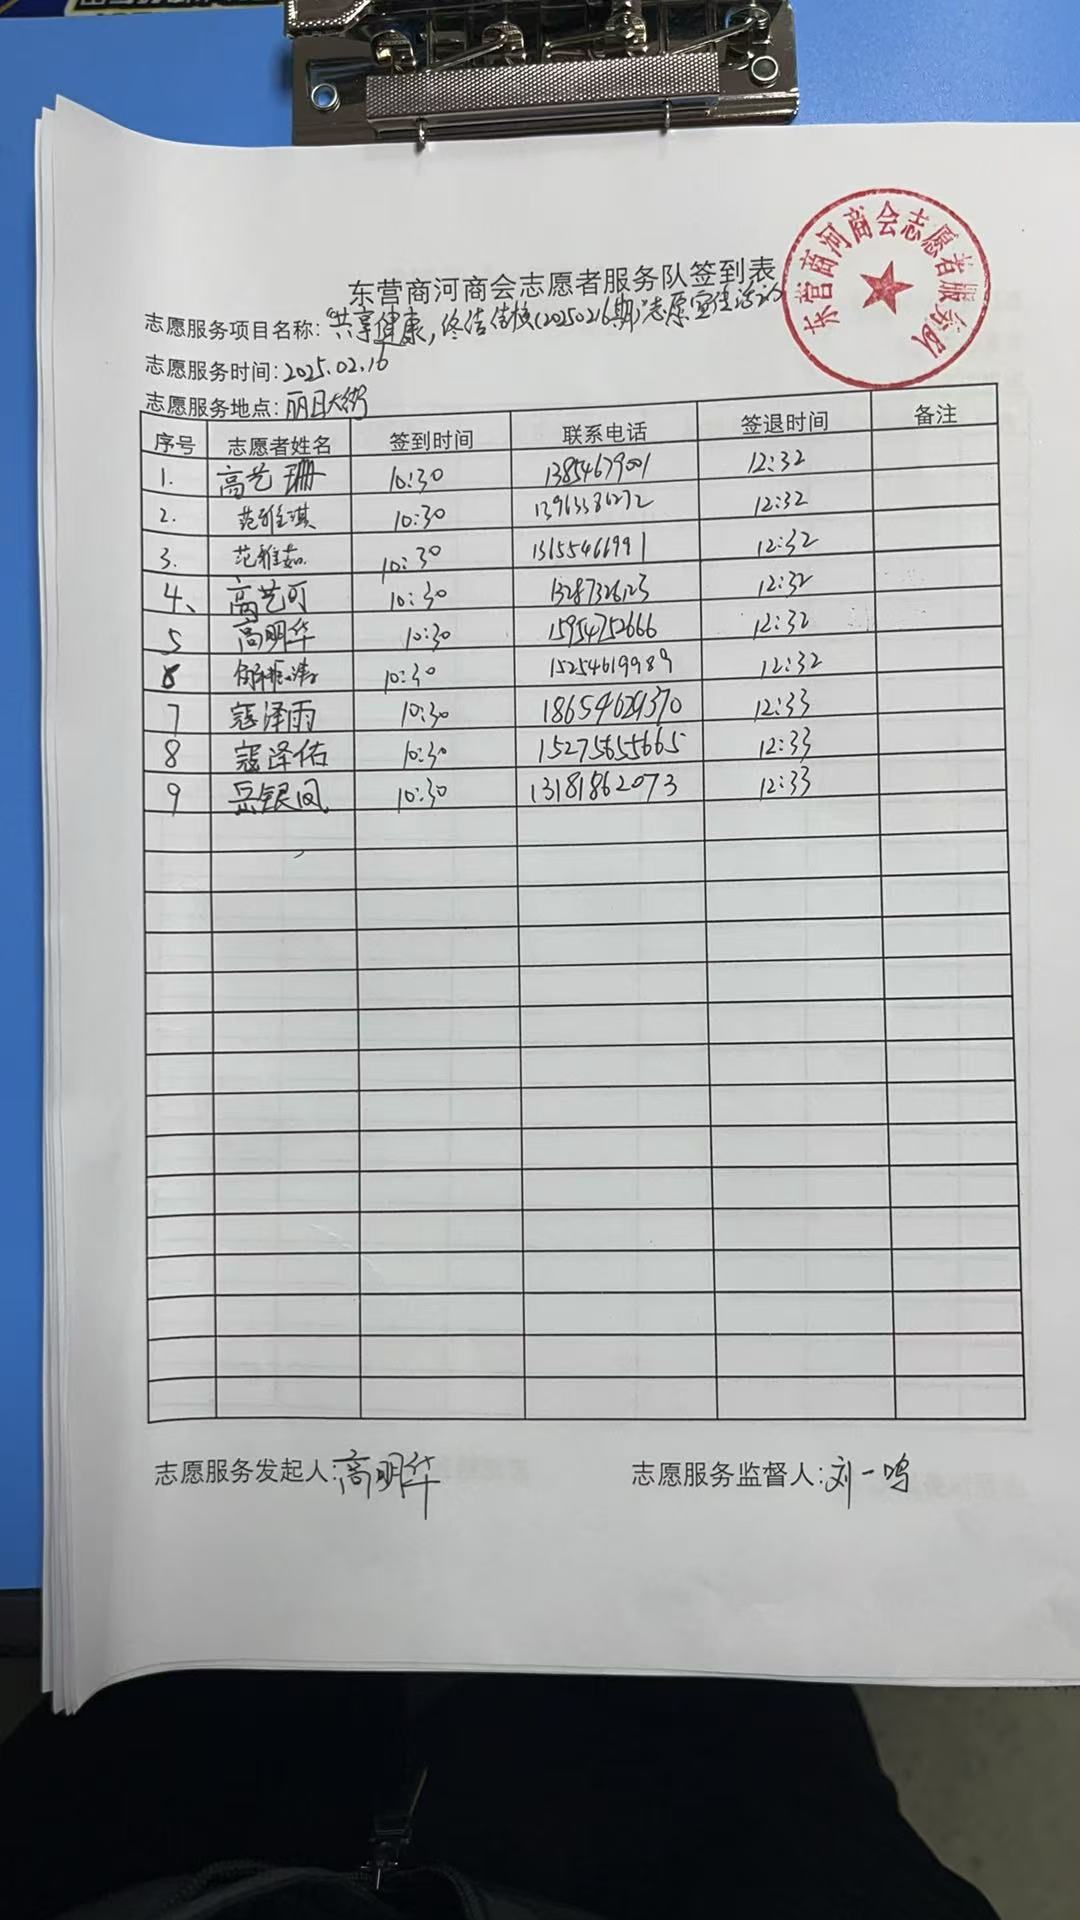 东营商河商会志愿者服务队
东营商河商会志愿者服务队签到表
志愿服务项目名称:"共享健康,终结结核(20250216期)"志愿宣传活动
志愿服务时间:2025.02.16
志愿服务地点:丽日大街
序号 志愿者姓名 签到时间 联系电话 签退时间 备注
1. 高艺珊 10:30 13854679001 12:32
2. 范雅琪 10:30 13963386272 12:32
3. 范雅茹 10:30 13655466991 12:32
4、 高艺可 10:30 12:32
5 高明华 10:30 15954752666 12:32
6 10:30 15254619989 12:32
7 寇泽雨 10:30 18654629370 12:33
8 寇泽佑 10:30 15275655665 12:33
9 岳银凤 10:30 13181862073 12:33
志愿服务发起人:高明华 志愿服务监督人:刘一鸣